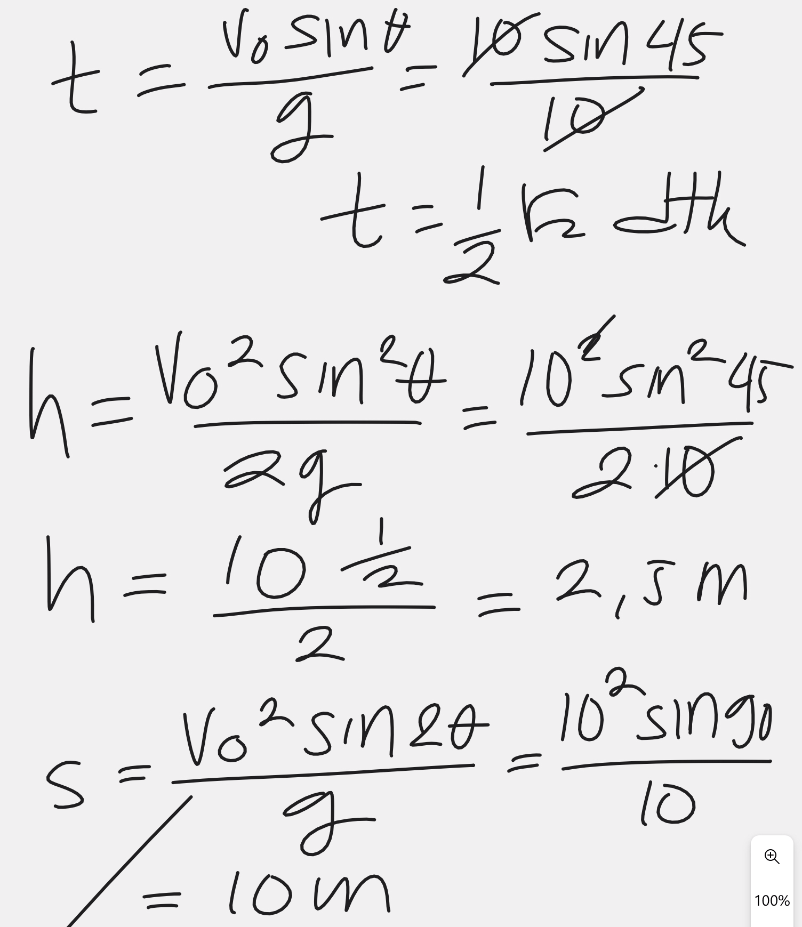 t = v₀ sin θ / g = 10 sin 45 / 10
t = 1/2 √2 dtk
h = v₀² sin² θ / 2g = 10² sin² 45 / 2·10
h = 10 1/2 / 2 = 2,5 m
s = v₀² sin 2θ / g = 10² sin 90 / 10
= 10 m
100%